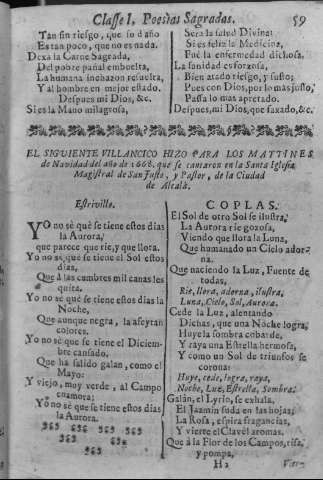 Classe I, Poesias Sagradas. 59
Tan sin riesgo, que su daño
Es tan poco, que no es nada.
Dexa la Carne Sagrada,
Del pobre pañal embuelta,
La humana hinchazon resuelta,
Y al hombre en mejor estado.
Despues mi Dios, &c.
Si es la Mano milagrosa,
Sera la salud Divina:
Si es feliz la Medicina,
Fue la enfermedad dichosa.
La sanidad es forzosa,
Bien atado riesgo, y susto;
Pues con Dios, por lo mas justo,
Passa lo mas apretado.
Despues, mi Dios, que saxado, &c.
EL SIGUIENTE VILLANCICO HIZO PARA LOS MAYTINES
de Navidad del año de 1668. que se cantaron en la Santa Iglesia
Magistral de San Justo, y Pastor, de la Ciudad
de Alcalà.
Estrivillo.
YO no sè què se tiene estos dias
la Aurora,
que parece que rie, y que llora.
Yo no sè què se tiene el Sol estos
dias,
Que à las cumbres mil canas les
quita.
Yo no sè què se tiene estos dias la
Noche,
Que aunque negra, la afeytan
colores.
Yo no sè que se tiene el Diciem-
bre cansado,
Que ha salido galan, como el
Mayo:
Y viejo, muy verde, al Campo
enamora;
Yo no sè que se tiene estos dias
la Aurora.
COPLAS.
El Sol de otro Sol se ilustra,
La Aurora rie gozosa,
Viendo que llora la Luna,
Que humanado un Cielo ador-
na.
Que naciendo la Luz, Fuente de
todas,
Rie, llora, adorna, ilustra,
Luna, Cielo, Sol, Aurora.
Cede la Luz, alentando
Dichas, que una Noche logra;
Huye la sombra cobarde,
Y raya una Estrella hermosa,
Y como un Sol de triunfos se
corona:
Huye, cede, logra, raya,
Noche, Luz, Estrella, Sombra.
Galán, el Lyrio, se exhala,
El Jazmin suda en las hojas,
La Rosa, espira fragancias,
Y vierte el Clavel aromas.
Que à la Flor de los Campos, risa,
y pompa,
H2